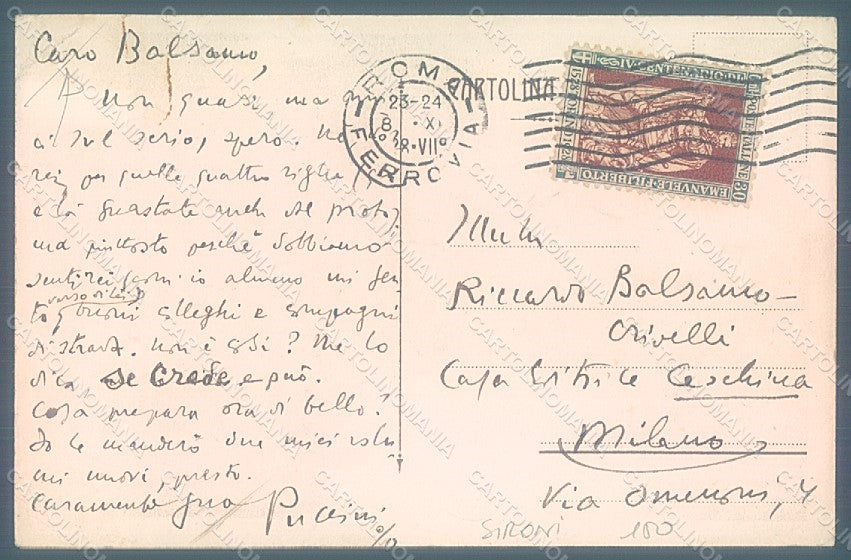 Caro Balsamo,
Non quasi ma
sul serio, spero.
per quelle quattro righe
e là guastate anche dal proto,
ma piuttosto perché dobbiamo
sentirci, io almeno mi sen-
verso di Lei
to, buoni colleghi e compagni
di strada. Non è così? Me lo
dica se crede, e può.
Cosa prepara ora di bello?
Io le manderò due miei volu
mi nuovi, presto.
Caramente suo
ROMA
FERROVIA
23-24
8 · XI
28 · VII°
CARTOLINA
POSTE ITALIANE
EMANVELE · FILIBERTO
30
1528 TORINO 1928
Riccardo Balsamo-
Crivelli
Casa Editrice Ceschina
Milano
Via Omenoni, 4
SIRONI 180
CARTOLINOMANIA